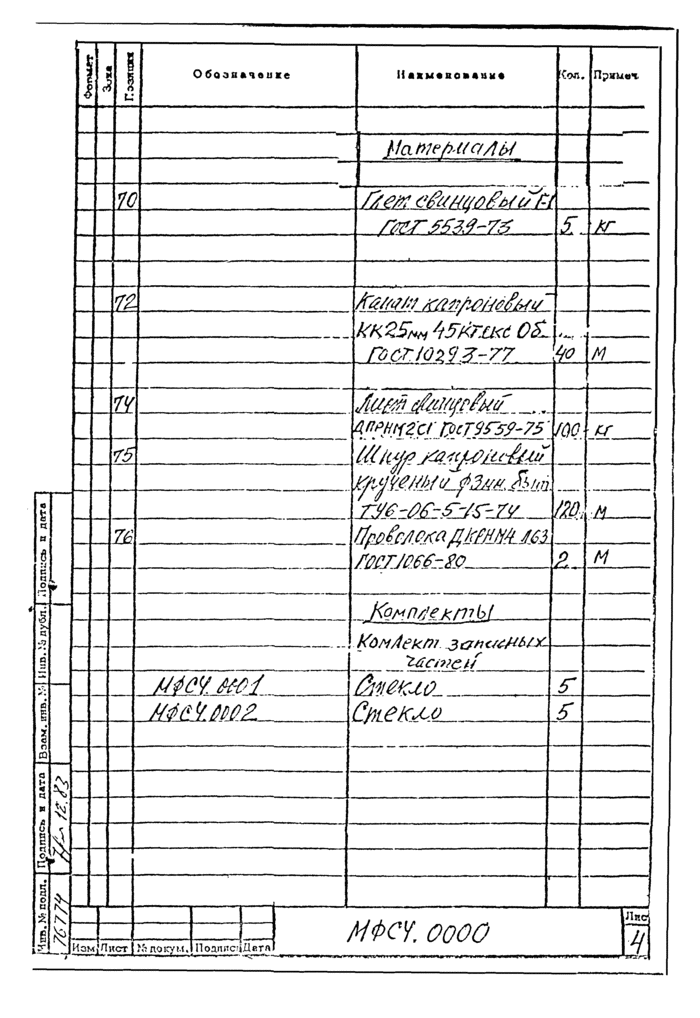 Формат Зона Позиция Обозначение Наименование Кол. Примеч.
Материалы
70 Глет свинцовый
ГОСТ 5539-73 5 кг
72 Канат капроновый
КК25мм 45КТЕКС Об.
ГОСТ 10293-77 40 м
74 Лист свинцовый
ДПРНМ2С1 ГОСТ 9559-75 100 кг
75 Шнур капроновый
крученый
ТУ6-06-5-15-74 120 м
76 Проволока ДКРНМ4 Л63
ГОСТ 1066-80 2 М
Комплекты
Комлект запасных
частей
МФСЧ.0001 Стекло 5
МФСЧ.0002 Стекло 5
Инв. № подл. Подпись и дата Взам. инв. № Инв. № дубл. Подпись и дата
76774 12.83
Изм Лист № докум. Подпись Дата
МФСЧ.0000
Лис
4